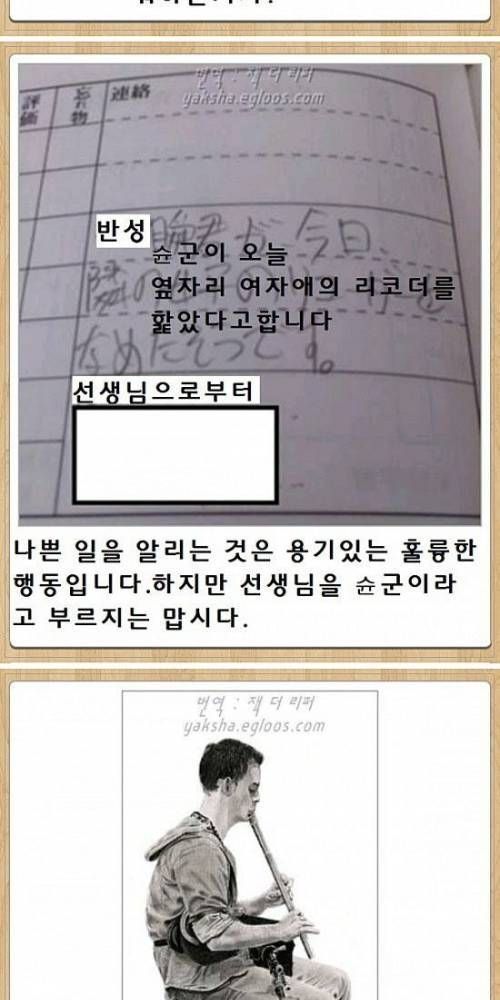 번역 : 잭 더 리퍼
yaksha.egloos.com
評価
忘れ物
連絡
반성
瞬君が今日、
슌군이 오늘
옆자리 여자애의 리코더를
핥았다고합니다
なめたそうです。
선생님으로부터
나쁜 일을 알리는 것은 용기있는 훌륭한
행동입니다.하지만 선생님을 슌군이라
고 부르지는 맙시다.
번역 : 잭 더 리퍼
yaksha.egloos.com